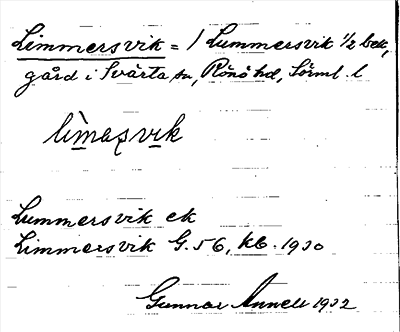 Limmersvik = / Lummersvik 1/2 bek,
gård i Svärta sn, Rönö hd, Sörml. l
lìmaʂvìk
Lummersvik ek
Limmersvik G. 56, kb. 1930
Gunnar Annell 1932